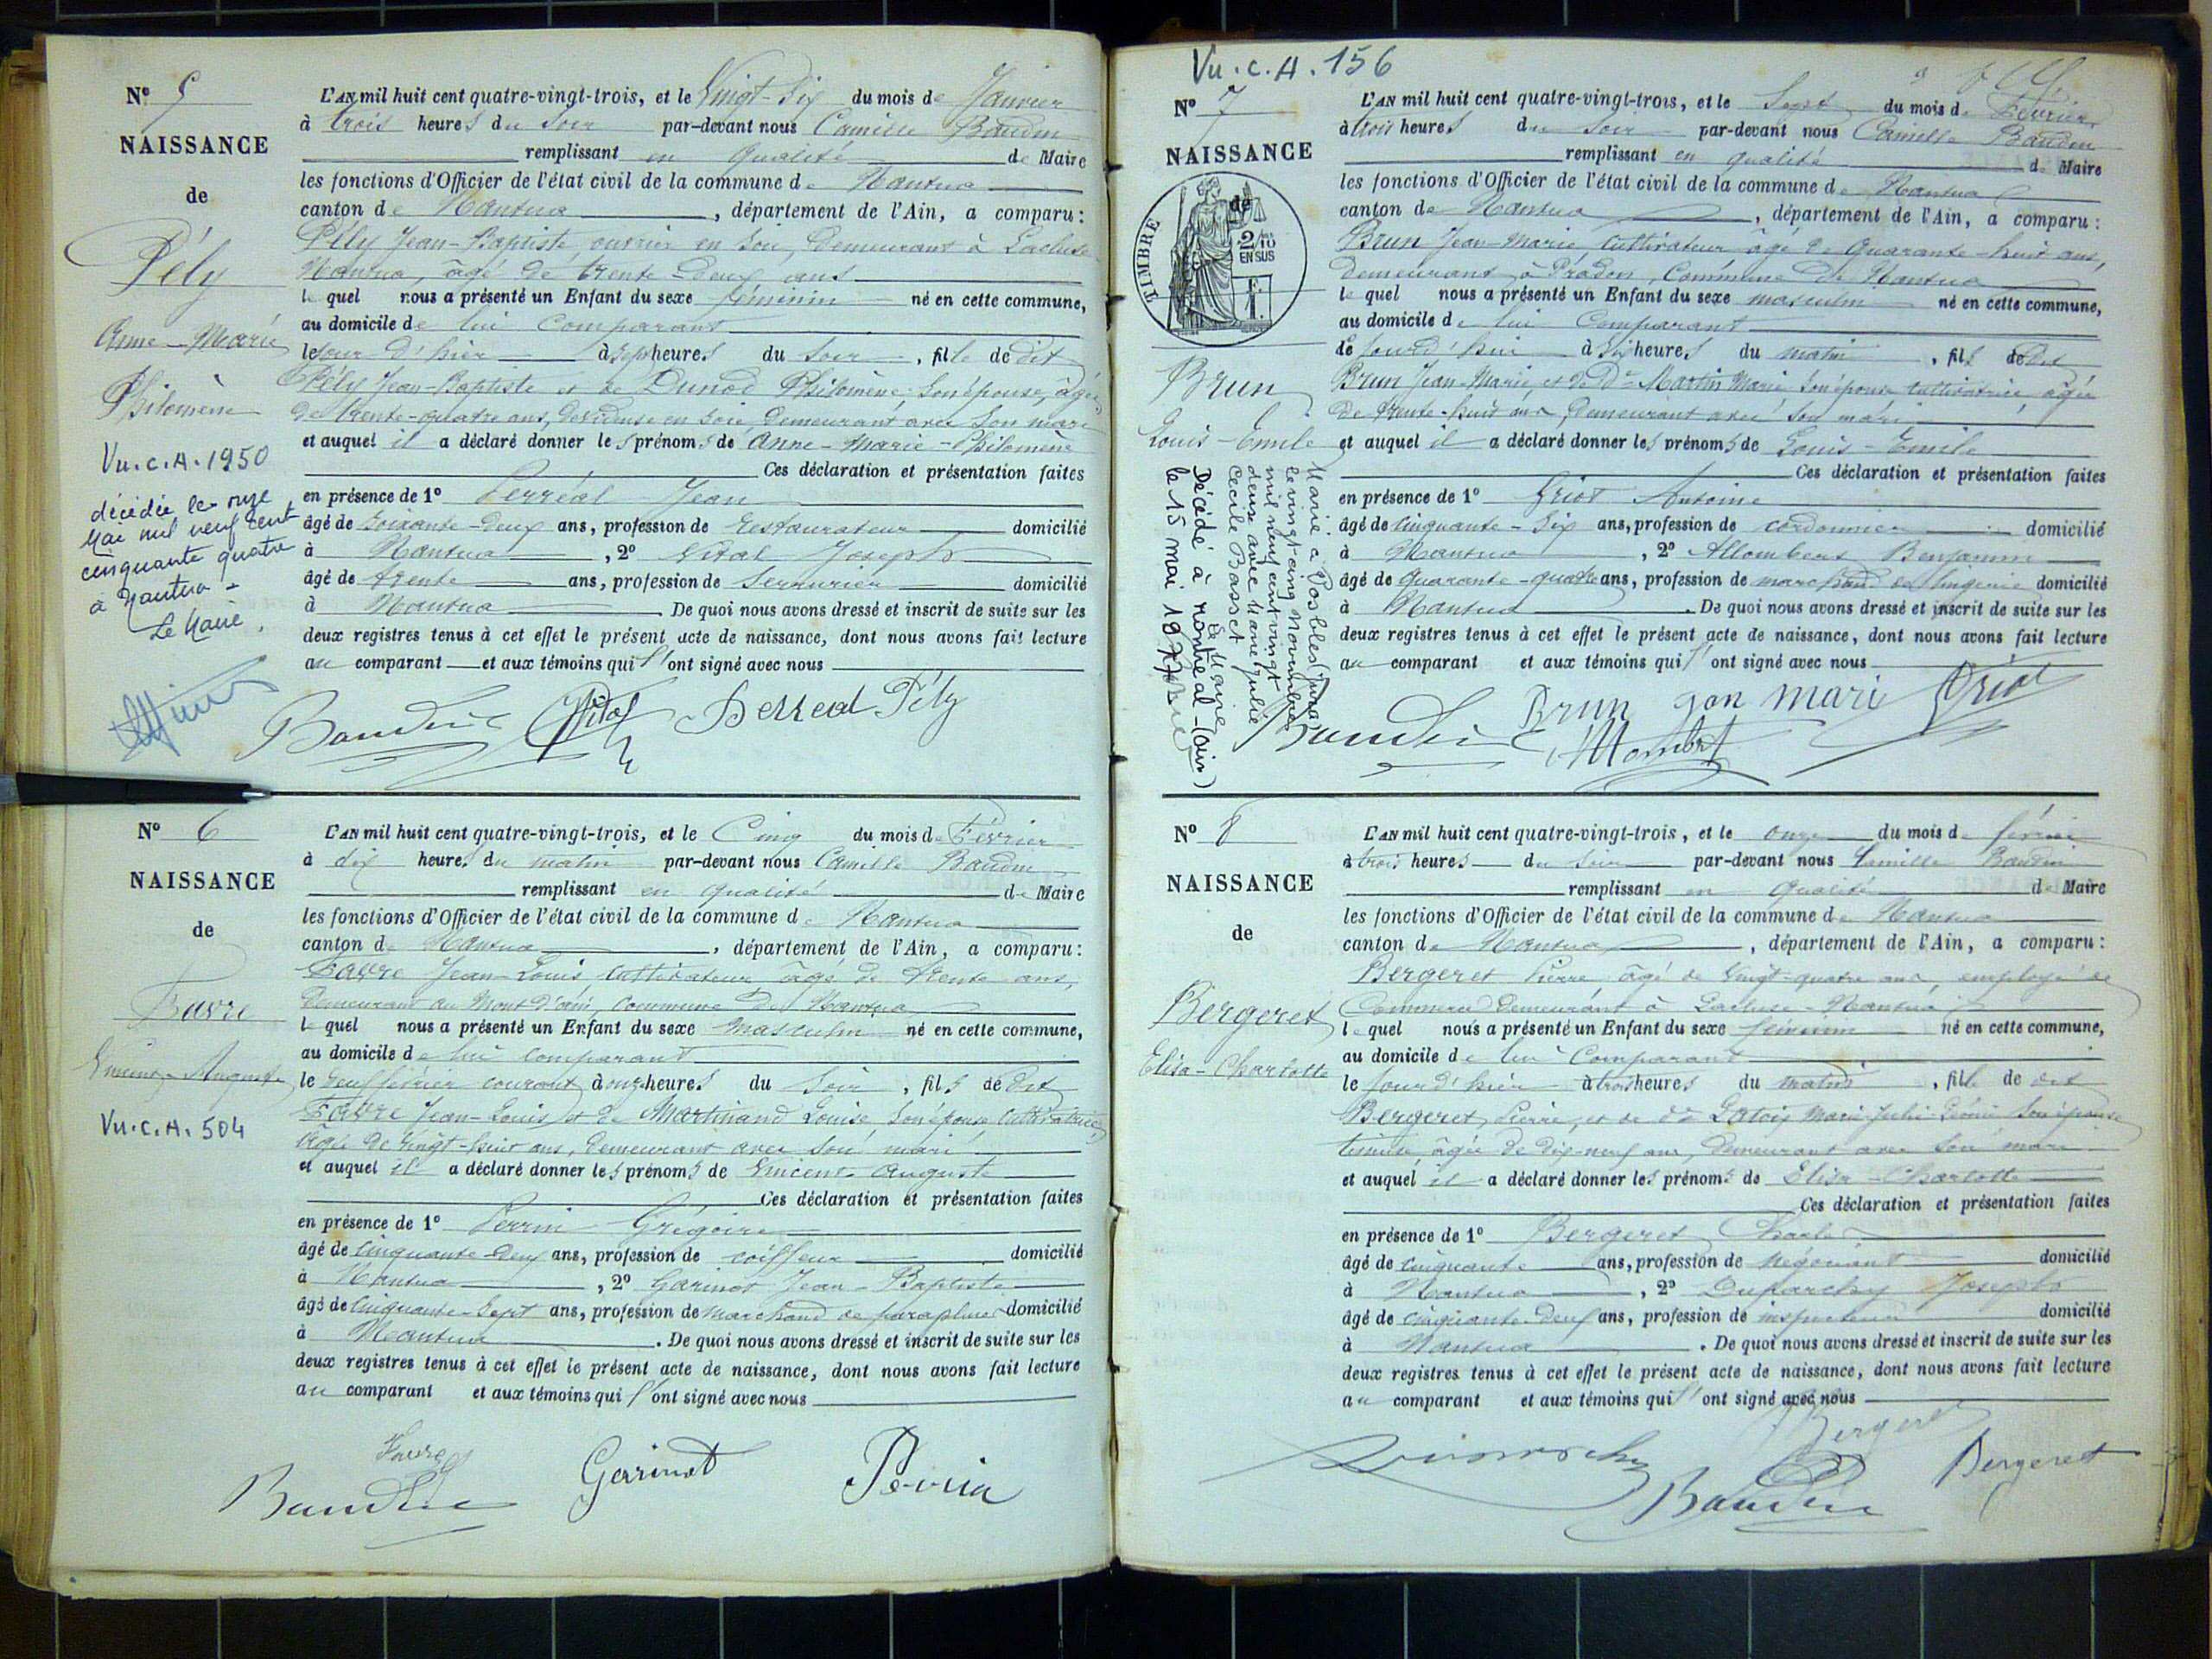 N° 5
NAISSANCE
de
Pély
Anne-Marie
Philomène
Vu.c.A.1950
décédée le onze
Mai mil neuf cent
cinquante quatre
à Nantua -
Le Maire,
L'AN mil huit cent quatre-vingt-trois, et le Vingt-Six du mois de Janvier
à trois heures du Soir par-devant nous Camille Baudin
remplissant en qualité de Maire
les fonctions d'Officier de l'état civil de la commune de Nantua
canton de Nantua, département de l'Ain, a comparu:
Pély Jean-Baptiste, ouvrier en soie, demeurant à Lacluse
Nantua, âgé de trente-deux ans
lequel nous a présenté un Enfant du sexe féminin né en cette commune,
au domicile de lui Comparant
le jour d'hier à sept heures du Soir, fille de dit
Pély Jean-Baptiste et de Dunod Philomène, son épouse, âgée
de trente-quatre ans, dévideuse en soie, demeurant avec son mari
et auquel il a déclaré donner les prénoms de Anne-Marie-Philomène
Ces déclaration et présentation faites
en présence de 1° Perréal Jean
âgé de soixante-deux ans, profession de Restaurateur domicilié
à Nantua, 2° Vital Joseph
âgé de trente ans, profession de Serrurier domicilié
à Nantua. De quoi nous avons dressé et inscrit de suite sur les
deux registres tenus à cet effet le présent acte de naissance, dont nous avons fait lecture
au comparant et aux témoins qui l'ont signé avec nous
Baudin Vital Perreal Pély
N° 6
NAISSANCE
de
Favre
Vincent-Auguste
Vu.c.A. 504
L'AN mil huit cent quatre-vingt-trois, et le Cinq du mois de Février
à dix heures du matin par-devant nous Camille Baudin
remplissant en qualité de Maire
les fonctions d'Officier de l'état civil de la commune de Nantua
canton de Nantua, département de l'Ain, a comparu:
Favre Jean-Louis, cultivateur, âgé de trente ans,
demeurant au Mont d'ain, commune de Nantua
lequel nous a présenté un Enfant du sexe masculin né en cette commune,
au domicile de lui comparant
le deux février courant à onze heures du Soir, fils de dit
Favre Jean-Louis et de Martinand Louise, son épouse, cultivatrice,
âgée de vingt-huit ans, demeurant avec son mari
et auquel il a déclaré donner les prénoms de Vincent-Auguste
Ces déclaration et présentation faites
en présence de 1° Perrin Grégoire
âgé de Cinquante-deux ans, profession de coiffeur domicilié
à Nantua, 2° Garinot Jean-Baptiste
âgé de Cinquante-Sept ans, profession de marchand de parapluies domicilié
à Nantua. De quoi nous avons dressé et inscrit de suite sur les
deux registres tenus à cet effet le présent acte de naissance, dont nous avons fait lecture
au comparant et aux témoins qui l'ont signé avec nous
Favre
Baudin Garinot Perrin
Vu.c.A.156
N° 7
NAISSANCE
de
TIMBRE
2/10
EN SUS
Brun
Louis-Emile
Marié à Posbles (Jura)
le vingt-cinq Novembre
mil neuf cent vingt
deux avec Marie Julie
Cécile Basset
Le Maire
Décédé à Montréal-(Ain)
le 15 mai 1977
L'AN mil huit cent quatre-vingt-trois, et le Sept du mois de Février
à trois heures du Soir par-devant nous Camille Baudin
remplissant en qualité de Maire
les fonctions d'Officier de l'état civil de la commune de Nantua
canton de Nantua, département de l'Ain, a comparu:
Brun Jean-Marie, Cultivateur âgé de Quarante-huit ans,
demeurant à Pradon, Commune de Nantua
lequel nous a présenté un Enfant du sexe masculin né en cette commune,
au domicile de lui Comparant
de jourd'hui à Six heures du matin, fils de dit
Brun Jean-Marie, et de De Martin Marie, son épouse, cultivatrice, âgée
de trente-huit ans, demeurant avec son mari
et auquel il a déclaré donner les prénoms de Louis-Emile
Ces déclaration et présentation faites
en présence de 1° Griot Antoine
âgé de Cinquante-Six ans, profession de cordonnier domicilié
à Nantua, 2° Allombert Benjamin
âgé de Quarante-quatre ans, profession de marchand de lingerie domicilié
à Nantua. De quoi nous avons dressé et inscrit de suite sur les
deux registres tenus à cet effet le présent acte de naissance, dont nous avons fait lecture
au comparant et aux témoins qui l'ont signé avec nous
Brun Jan mari Griot
Baudin
N° 8
NAISSANCE
de
Bergeret
Elisa-Charlotte
L'AN mil huit cent quatre-vingt-trois, et le onze du mois de février
à trois heures du Soir par-devant nous Camille Baudin
remplissant en qualité de Maire
les fonctions d'Officier de l'état civil de la commune de Nantua
canton de Nantua, département de l'Ain, a comparu:
Bergeret Pierre, âgé de vingt-quatre ans, employé de
Commerce demeurant à Lacluse-Nantua
lequel nous a présenté un Enfant du sexe féminin né en cette commune,
au domicile de lui Comparant
le jour d'hier à trois heures du matin, fille de dit
Bergeret Pierre, et de De Marie-Julie son épouse
âgée de dix-neuf ans, demeurant avec son mari
et auquel il a déclaré donner les prénoms de Elisa-Charlotte
Ces déclaration et présentation faites
en présence de 1° Bergeret Charles
âgé de cinquante ans, profession de négociant domicilié
à Nantua, 2° Duparchy Joseph
âgé de cinquante-deux ans, profession de inspecteur domicilié
à Nantua. De quoi nous avons dressé et inscrit de suite sur les
deux registres tenus à cet effet le présent acte de naissance, dont nous avons fait lecture
au comparant et aux témoins qui l'ont signé avec nous
Bergeret
Bergeret
Baudin